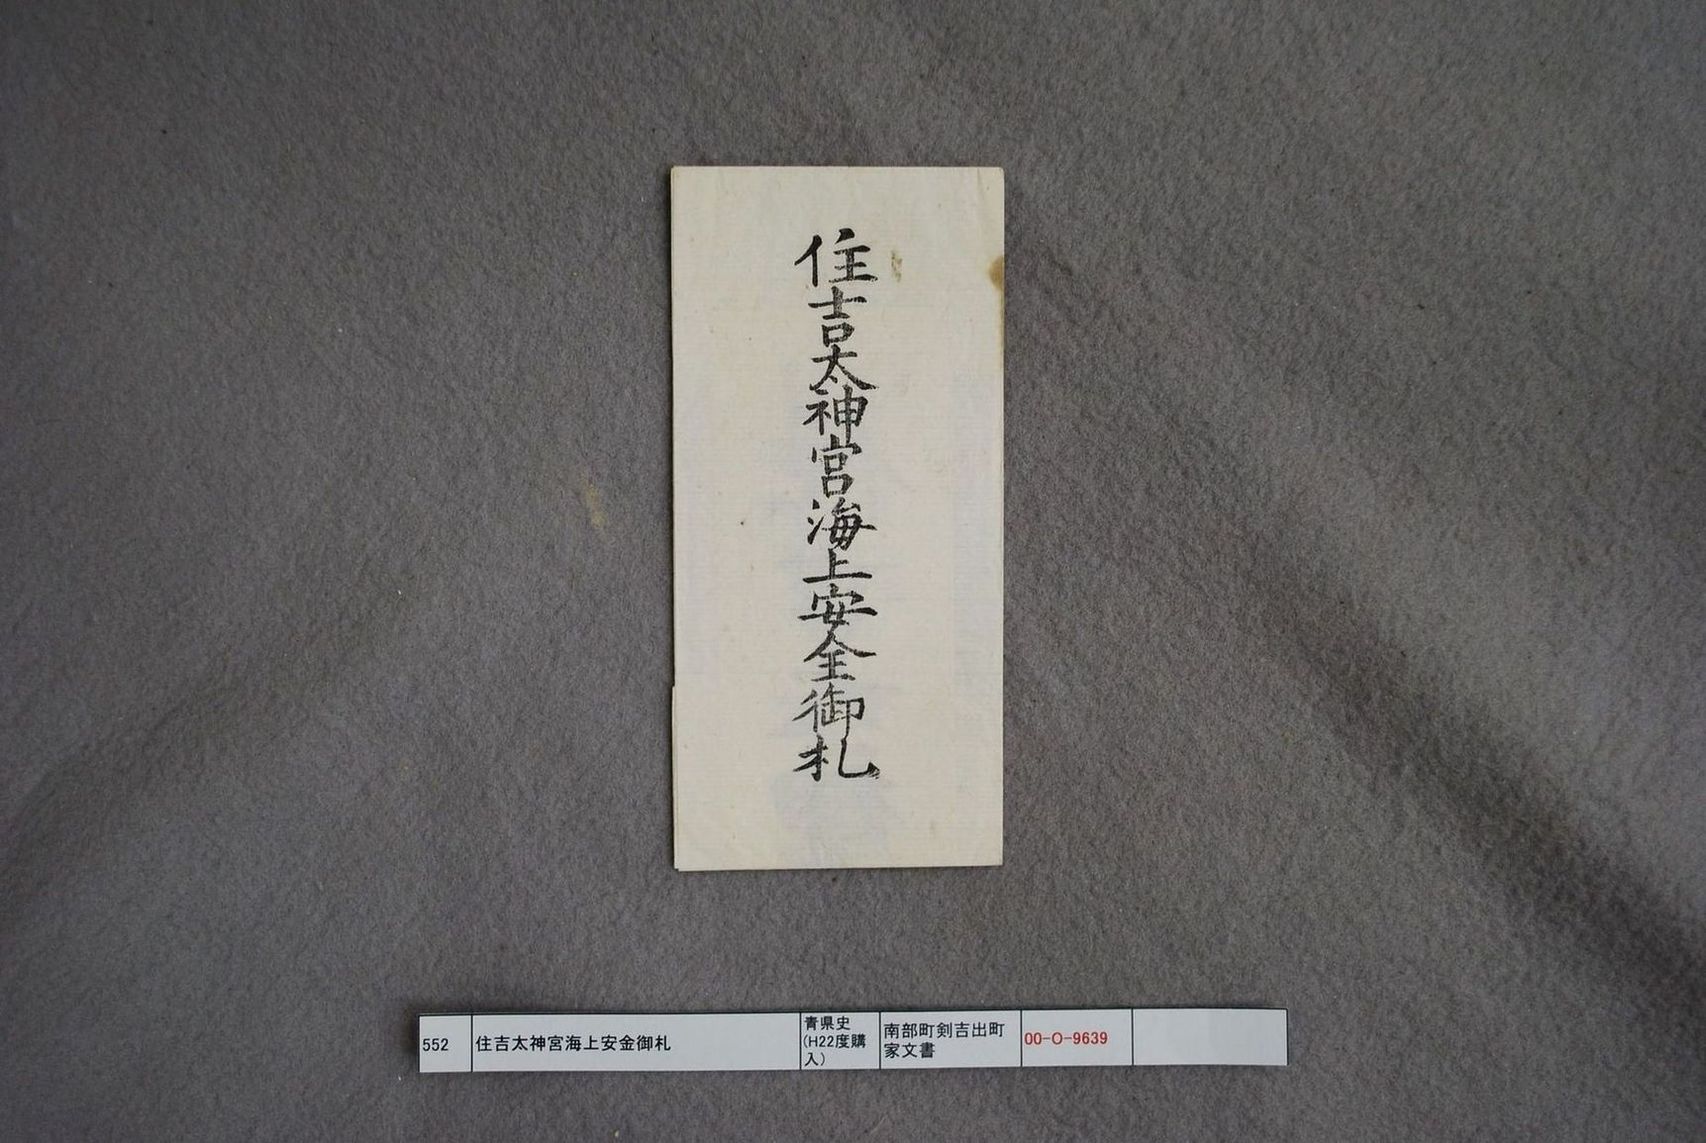 住吉太神宮海上安全御札
552
住吉太神宮海上安金御札
青県史
(H22度購
入)
南部町剣吉出町
家文書
00-O-9639